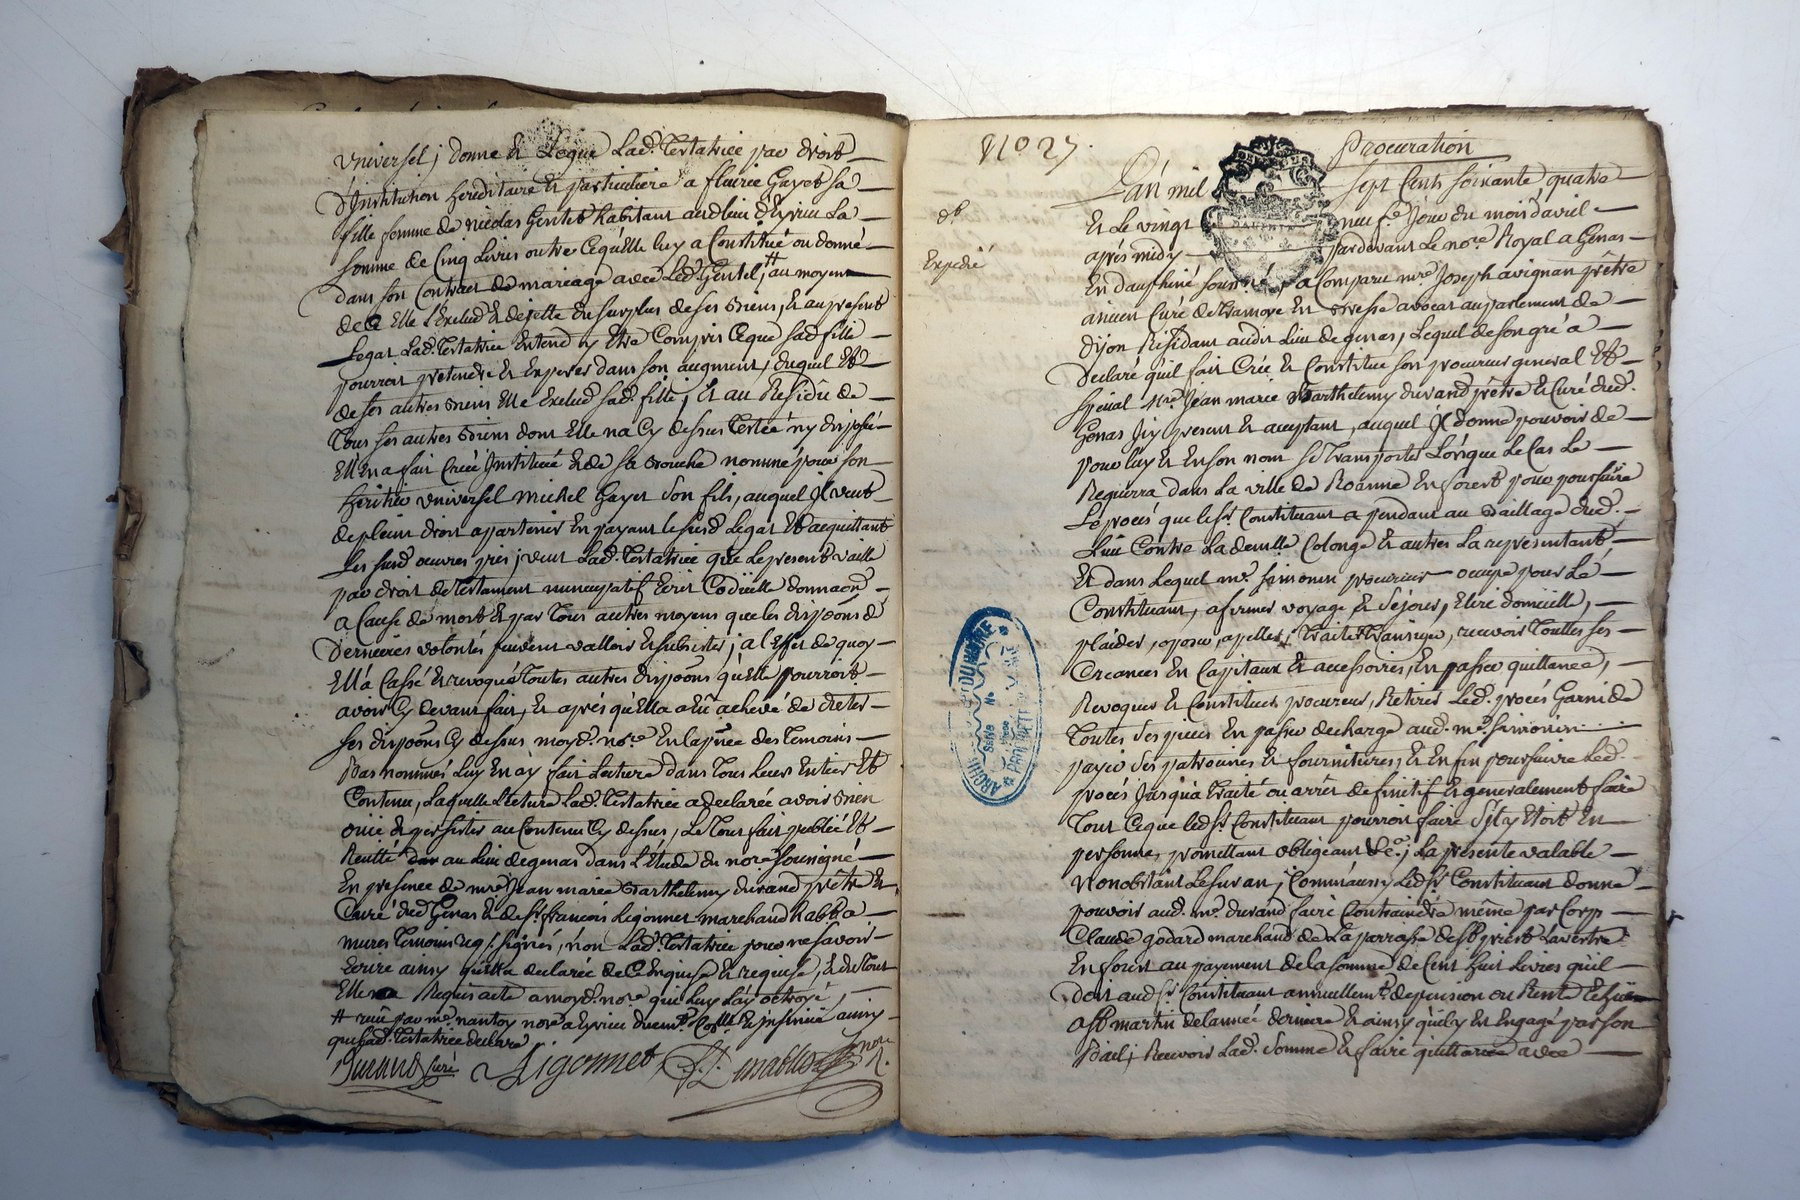 universel; donne et Legue Lad. Testatrice par droit
d'Institution hereditaire et particuliere a fleurie Gayet sa
fille femme de nicolas Gentet habitant aud lieu d'Eyrieu La
somme de Cinq Livres outre Cequ'elle luy a Constitué ou donné
dans son Contract de mariage avec Led. Gentet, # au moyen
de Ce Elle l'Exclud et dejette du surplus de ses Biens, Et au present
Legat Lad. Testatrice Entend y Etre Compris Ceque sad. fille
pourroit pretendre et Esperer dans son augment, duquel Et
de ses autres Biens Elle Exclud sad. fille; Et au Residu de
Tous ses autres Biens dont Elle na Cy dessus Testée ny disposé
Elle en a fait Creée Institué et de sa Bouche nommé pour son
heritier universel michel Gayet son fils, auquel Il veut
de plein droit appartenir En payant le susd. Legat Et acquittant
Les susd. oeuvres pies; veut Lad. Testatrice que Le present vaille
par droit de testament nuncupatif Ecrit Codicille donnaon
a Cause de mort Et par Tous autres moyens que les dispoons de
Dernieres volontés peuvent valloir Et subsister; a l'Effet de quoy
Ell'a Cassé Et revoqué Toutes autres dispoons qu'elle pourroit
avoir Cy devant fait, Et après qu'Ella a Eu achevé de dicter
ses dispoons Cy dessus moyd. nore En la pnce des Temoins
Bas nommés Luy En ay fait Lecture dans Tous leurs Entier Et
Contenu, Laquelle Lecture Lad. Testatrice a declarée avoir Bien
ouie Et persister au Contenu Cy dessus, Le Tout fait publié Et
Recitté au Lieu de genas dans L'Etude du nore soussigné
En presence de mre Jean marie Barthelemy durand prêtre Et
Curé dud. Genas Et de sr. francois Ligonnet marchand habt a
mures Temoins Req. signés, non Lad. Testatrice pour ne savoir
Ecrire ainsy qu'Ella declarée de Ce Enquise Et requise, Et du Tout
Elle a Requis acte a moyd. nore que Luy L'ay octroyé,
# reçu par me. nantoy nore a Eyrieu Controllé Et Insinué ainsy
que lad. Testatrice declare
Durand Curé Ligonnet nore
N° 27 Procuration
L'an mil sept Cents soixante quatre
Et Le vingt neuf.e Jour du mois d'avril
Expedié
après midy pardevant Le nore Royal a Genas
En dauphiné souss.né, a Comparu mre Joseph avignan prêtre
ancien Curé de Tramoye En Bresse avocat au parlement de
Dijon Residant audit Lieu de genas, Lequel de son gré a
Declaré qu'il fait Crée et Constitue son procureur general Et
special Mre. Jean marie Barthelemy durand prêtre Et Curé dud.
Genas Icy present Et acceptant, auquel Il donne pouvoir de
pour luy Et En son nom se Transporter Lorsque Le Cas Le
Requierra dans La ville de Roanne En forest pour poursuivre
Le procés que le sr. Constituant a pendant au Baillage dud.
Lieu Contre La demlle Colonge Et autres La representant,
Et dans Lequel me. Simonin procureur occupe pour Le
Constituant, afirmer voyage Et Sejour, Elire domicille,
plaider, oposer, apeller, Traiter Transiger, recevoir Touttes ses
Creances En Capitaux Et accessoires, En passer quittance,
Revoquer Et Constituer procureur, Retirer Led. procés Garni de
Toutes ses pieces En passer decharge aud. me. Simonin
payer ses patrocines Et fournitures, Et Enfin poursuivre Led.
procés Jusqu'a Traité ou arrêt definitif Et generalement faire
Tout Ceque led. sr. Constituant pourroit faire S'il y Etoit En
personne, promettant obligeant &c.; La presente valable
Nonobstant Le suran; Comm'aussy Led. sr. Constituant donne
pouvoir aud. me. durand faire Contraindre même par Corps
Claude godard marchand de La parroisse de st. priest La vestre
En forest au payement de la somme de Cent huit Livres qu'il
Doit aud. sr. Constituant annuellemt. de pension ou Rente Echüe
a st. martin de l'année derniere Et ainsy qu'il s'y En Engagé par son
Bail; Recevoir Lad. Somme Et faire quittance avec